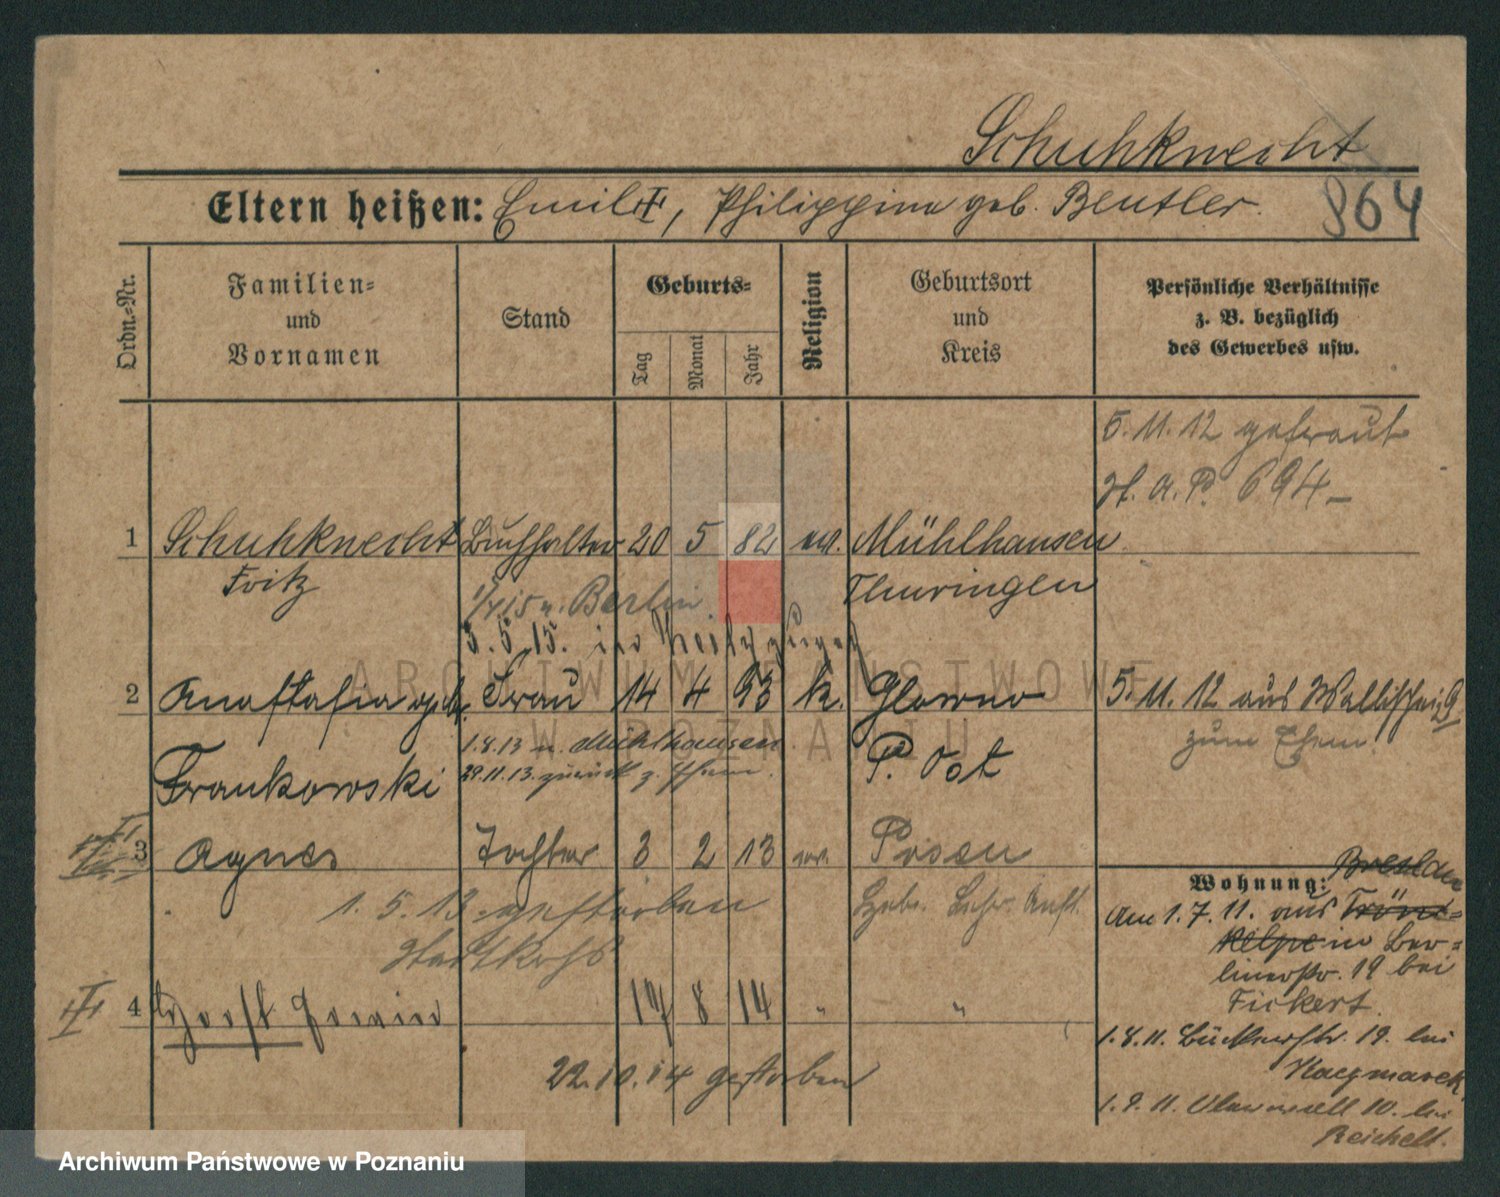 Schuhknecht
Eltern heißen: Emil †, Philippine geb. Beutler.
864
Ordn.-Nr.
Familien- und Vornamen
Stand
Geburts-
Tag
Monat
Jahr
Religion
Geburtsort und Kreis
Persönliche Verhältnisse z. B. bezüglich des Gewerbes usw.
5. 11. 12 getraut
St. A. P. 694
1 Schuhknecht Buchhalter 20 5 82 ev. Mühlhausen
Fritz Thüringen
Berlin
5. 5. 15.
2 Anastasia geb. Frau 14 4 93 k. Glowno 5. 11. 12 aus
zum Ehem.
1. 8. 13 n. Mühlhausen
Frankowski P. Ost
29. 11. 13. zurück z. Ehem.
3 Agnes Tochter 3 2 13 ev. Posen
1. 5. 13 gestorben
Stadtkrhs
Wohnung: Breslau
Am 1. 7. 11. aus
in Ber-
linerstr. 19 bei
Fickert.
4 Horst Erwin 17 8 14 " "
22. 10. 14 gestorben
1. 8. 11. 19. bei
Kaczmarek
1. 9. 11. 10. bei
Reichelt.
ARCHIWUM PAŃSTWOWE
W POZNANIU
Archiwum Państwowe w Poznaniu